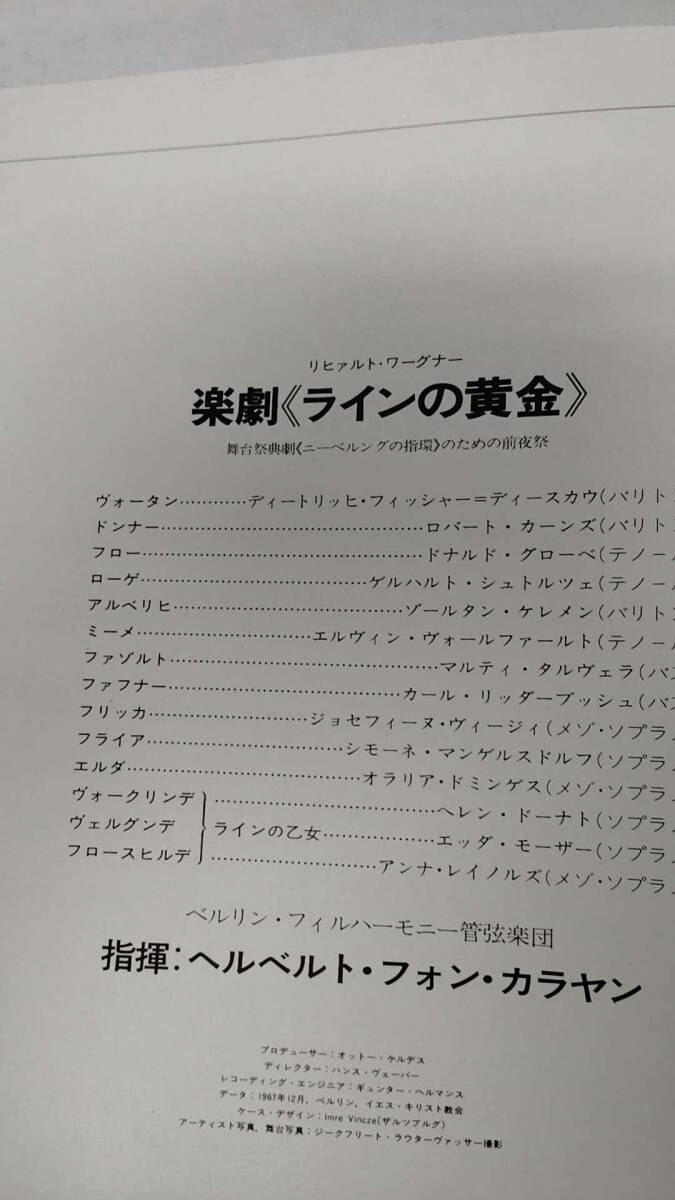 リヒァルト・ワーグナー
楽劇《ラインの黄金》
舞台祭典劇《ニーベルングの指環》のための前夜祭
ヴォータン…………ディートリッヒ・フィッシャー＝ディースカウ(バリト
ドンナー……………………………………ロバート・カーンズ(バリト
フロー………………………………………ドナルド・グローベ(テノール
ローゲ………………………………ゲルハルト・シュトルツェ(テノール
アルベリヒ………………………………ゾールタン・ケレメン(バリト
ミーメ…………………………エルヴィン・ヴォールファールト(テノール
ファゾルト……………………………………マルティ・タルヴェラ(バ
ファフナー………………………………カール・リッダーブッシュ(バ
フリッカ………………………ジョセフィーヌ・ヴィージィ(メゾ・ソプラ
フライア……………………………シモーネ・マンゲルスドルフ(ソプラ
エルダ…………………………………オラリア・ドミンゲス(メゾ・ソプラ
ヴォークリンデ………………………………ヘレン・ドーナト(ソプラ
ヴェルグンデ ラインの乙女………………エッダ・モーザー(ソプラ
フロースヒルデ…………………………アンナ・レイノルズ(メゾ・ソプラ
ベルリン・フィルハーモニー管弦楽団
指揮：ヘルベルト・フォン・カラヤン
プロデューサー：オットー・ゲルデス
ディレクター：ハンス・ヴェーバー
レコーディング・エンジニア：ギュンター・ヘルマンス
データ：1967年12月，ベルリン，イエス・キリスト教会
ケース・デザイン：Imre Vincze(ザルツブルグ)
アーティスト写真，舞台写真：ジークフリート・ラウターヴァッサー撮影